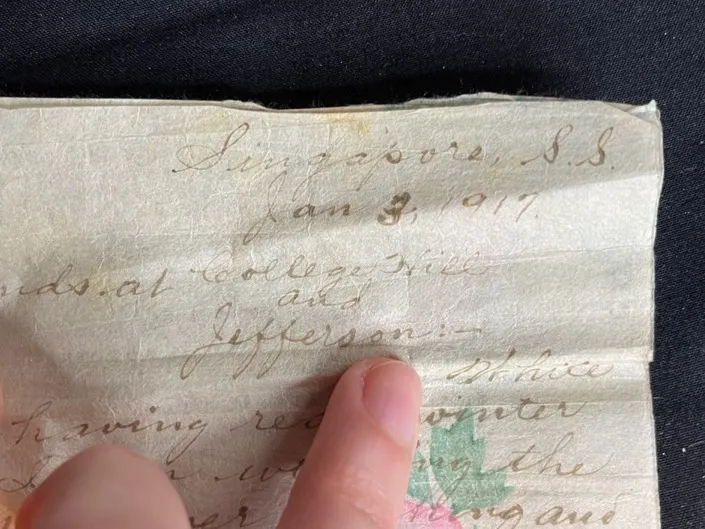 Singapore, S.S.
Jan 3, 1917.
nds at College Hill
and
Jefferson:—
While
having re winter
we ng the
er ing and